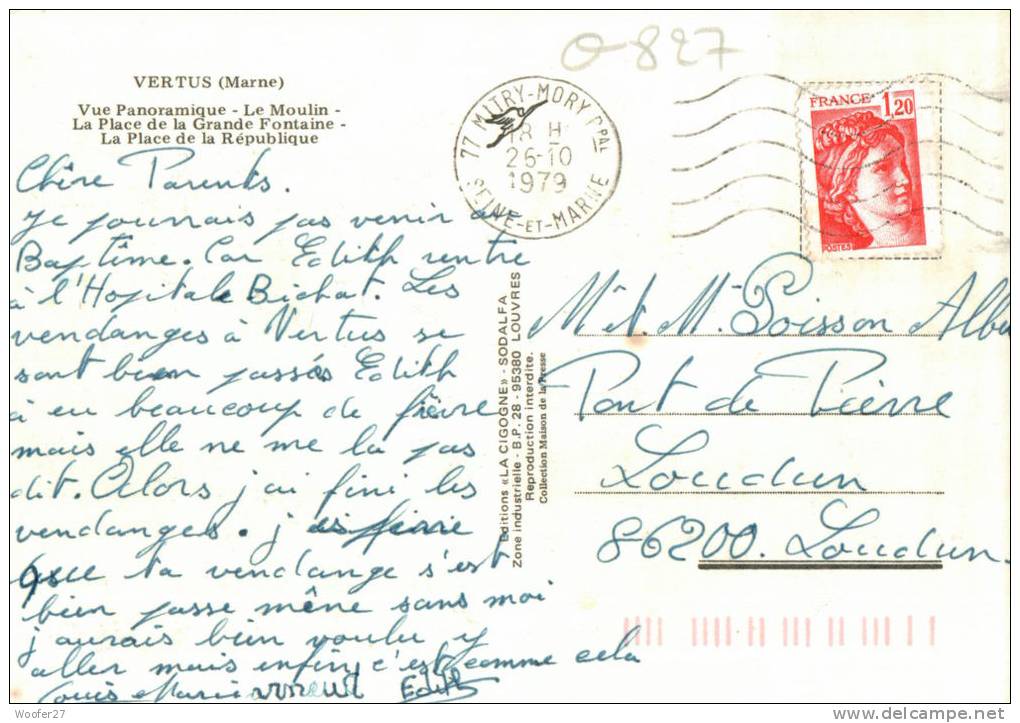 0-827
VERTUS (Marne)
Vue Panoramique - Le Moulin -
La Place de la Grande Fontaine -
La Place de la République
77 MITRY-MORY Cpal
18 H
26-10
1979
SEINE-ET-MARNE
FRANCE 1,20
POSTES
Chère Parents.
Je pourrais pas venir au
Baptême. Car Edith rentre
à l'Hopitale Bichat. Les
vendanges à Vertus se
sont bien passés Edith
à eu beaucoup de fièvre
mais elle ne me la pas
dit. Alors j'ai fini les
vendanges. j
que ta vendange s'est
bien passe mêne sans moi
j'aurais bien voulu y
aller mais enfin, c'est comme cela
Louis Marie Edith
Editions «LA CIGOGNE» - SODALFA
Zone industrielle - B.P. 28 - 95380 LOUVRES
Reproduction interdite.
Collection Maison de la Presse
M et M Poisson Albe
Pont de Pierre
Loudun
86200. Loudun.
Woofer27
delcampe.net